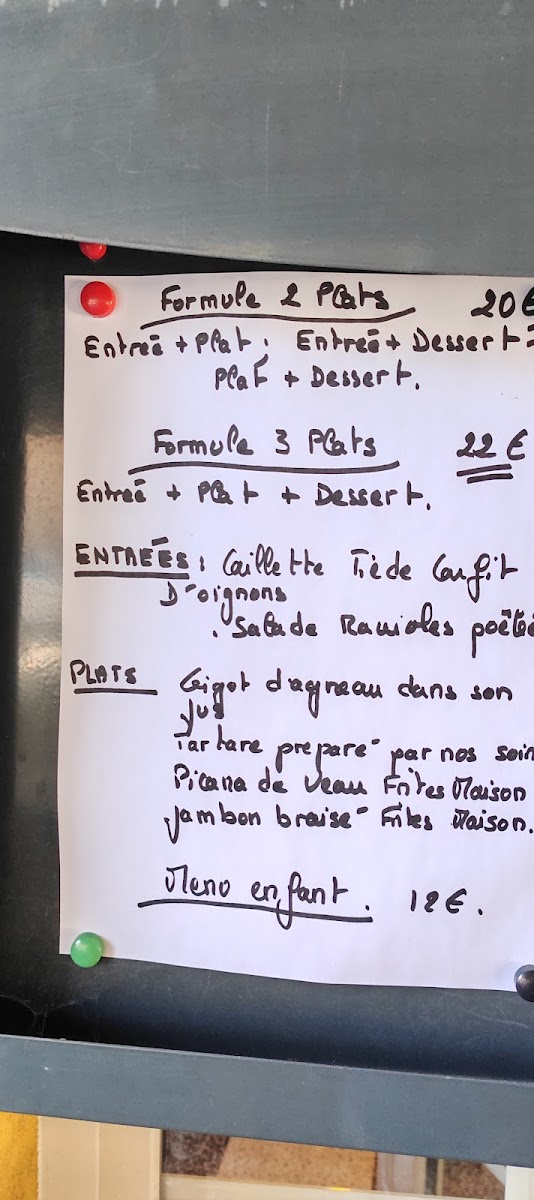 Formule 2 Plats 20€
Entreé + Plat. Entreé + Dessert
Plat + Dessert.
Formule 3 Plats 22 €
Entreé + Plat + Dessert.
ENTREÉS : Caillette Tiède Confit
D'oignons
. Salade Ravioles poêlé
PLATS Gigot d'agneau dans son
Jus
Tartare preparé par nos soin
Picana de veau Frites Maison
Jambon braisé Frites Maison.
Menu enfant. 12€.